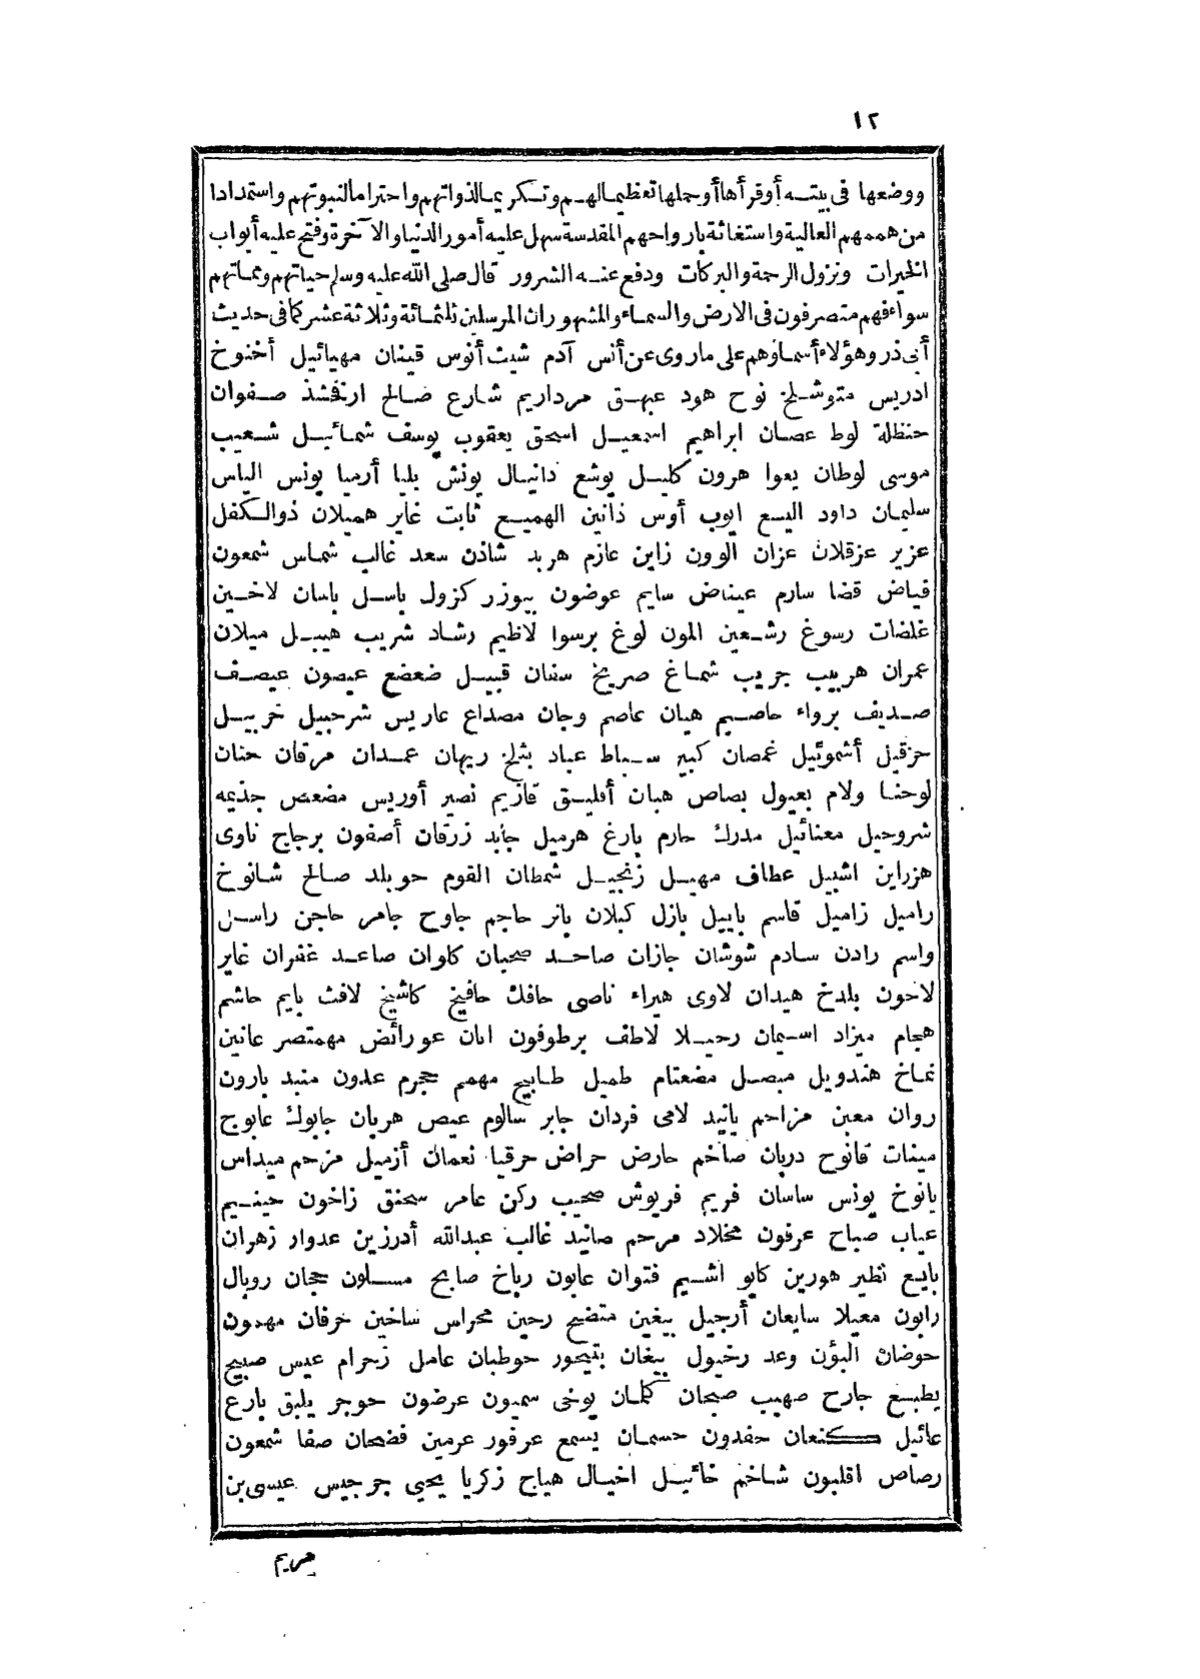 ١٢
ووضعها فى بيته أو قرأها أو حملها تعظيما لهم وتكريما لذواتهم واحتراما لنبوتهم واستمدادا
من هممهم العالية واستغاثة بأرواحهم المقدسة سهل عليه أمور الدنيا والآخرة وفتح عليه أبواب
الخيرات ونزول الرحمة والبركات ودفع عنه الشرور قال صلى الله عليه وسلم حياتهم ومماتهم
سواء فهم متصرفون فى الارض والسماء والمشهور ان المرسلين ثلثمائة وثلاثة عشر كما فى حديث
أبى ذر وهؤلاء أسماؤهم على ما روى عن أنس آدم شيث أنوس قينان مهيائيل أخنوخ
ادريس متوشلخ نوح هود عبهق مرداريم شارع صالح ارفخشذ صفوان
حنظلة لوط عصان ابراهيم اسمعيل اسحق يعقوب يوسف شمائيل شعيب
موسى لوطان يعوا هرون كليل يوشع دانيال بونش بليا أرميا يونس الياس
سليمان داود اليسع ايوب أوس ذانين الهميع ثابت غابر هميلان ذوالكفل
عزير عزقلان عزان الوون زاين عازم هربد شاذن سعد غالب شماس شمعون
فياض قضا سارم عيناض سايم عوضون بيوزر كزول باسل باسان لاخين
غلضات رسوغ رشعين المون لوغ برسوا لاظيم رشاد شريب هيبل ميلان
عمران هربيب جريب شماغ صريخ سفان قبيل ضعضع عيصون عيصف
صديف برواء حاصيم هيان عاصم وجان مصداع عاريس شرحبيل خربيل
حزقيل أشموئيل غمصان كبير سباط عباد بثلخ ريهان عمدان مرقان حنان
لوحنا ولام بعيول بصاص هبان أفليق قازيم نصير أوريس مضعض جذيمه
شروحيل معنائيل مدرك حارم بارغ هرميل جابد زرقان أصفون برجاج ناوى
هزراين اشبيل عطاف مهيل زنجيل شمطان القوم حوبلد صالح شانوخ
راميل زاميل قاسم باييل بازل كبلان باتر حاجم جاوح جامر حاجن راسل
واسم رادن سادم شوشان جازان صاحد صحبان كلوان صاعد غفران غاير
لاحون بلدخ هيدان لاوى هيراء ناصى حافك حافيخ كاشيخ لافث بايم حاشم
هجام ميزاد اسيمان رحيلا لاطف برطوفون ابان عورائض مهمتصر عانين
نماخ هندويل مبصل مضعتام طميل طابيخ مهمم حجرم عدون منبد بارون
روان معبن مزاحم يانيد لامى فردان جابر سالوم عيص هربان جابوك عابوج
مينات قانوح دربان صاخم حارض حراض حرقيا نعمان أزميل مزحم ميداس
يانوخ يونس ساسان فريم فريوش صحيب ركن عامر سحنق زاخون حينيم
عياب صباح عرفون مخلاد مرحم صانيد غالب عبدالله أدرزين عدوار زهران
بايع نظير هورين كابو اشيم فتوان عابون رباخ صابح مسلون حجان روبال
رابون معيلا سايعان أرجيل بيغين متضح رحين محراس ساخين خرفان مهدون
حوضان البؤن وعد رخيول بيغان بتيحور حوطبان عامل زحرام عيس صبيح
يطبع جارح صهيب صبحان كلمان يوخى سميون عرضون حوجر يلبق بارع
عائيل كنعان حفدون حسمان يسمع عرفور عرمين فضحان صفا شمعون
رصاص اقلبون شاخم خائيل اخيال هياج زكريا يحيى جرجيس عيسى بن
مريم